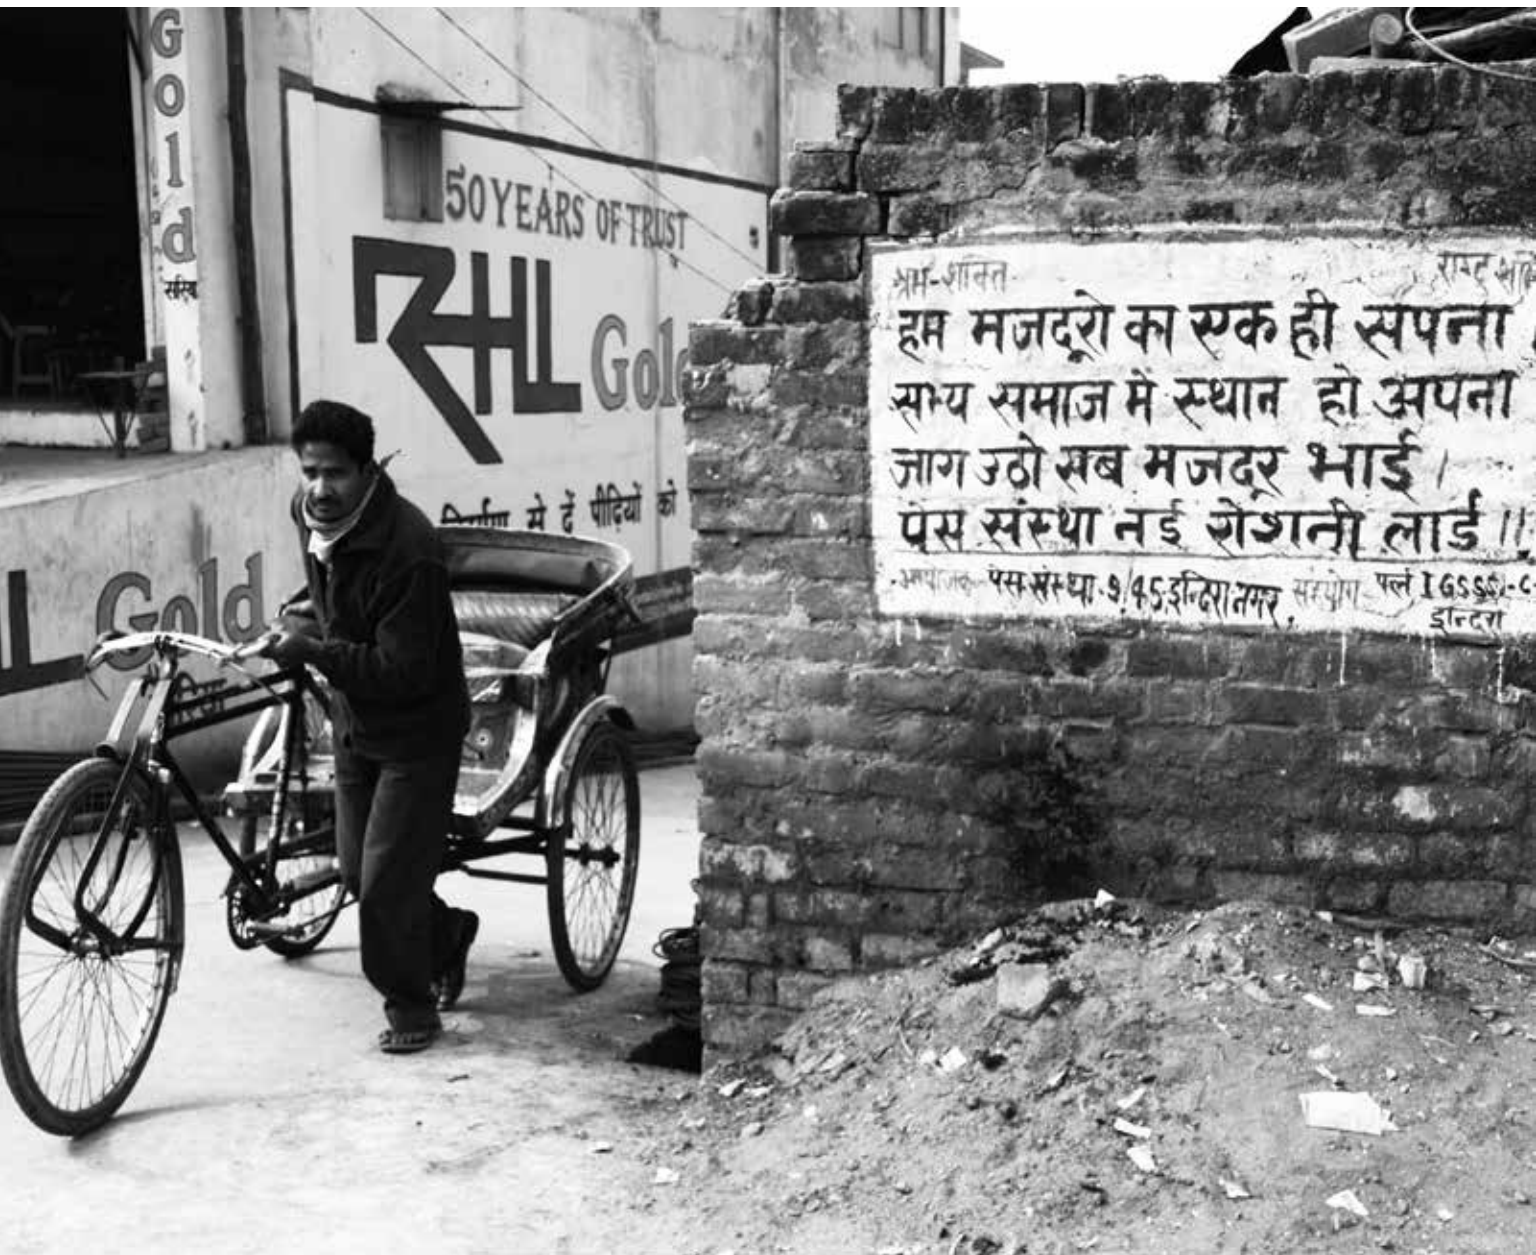 Gold
सरिया
50 YEARS OF TRUST
RHL Gold
निर्माण से दें पीढ़ियों को
L Gold
श्रम-शक्ति
राष्ट्र
हम मजदूरो का एक ही सपना
सभ्य समाज मे स्थान हो अपना
जाग उठो सब मजदूर भाई।
पेस संस्था नई रोशनी लाई॥
पेस संस्था-9/45 इन्दिरा नगर, सहयोग
इन्दिरा